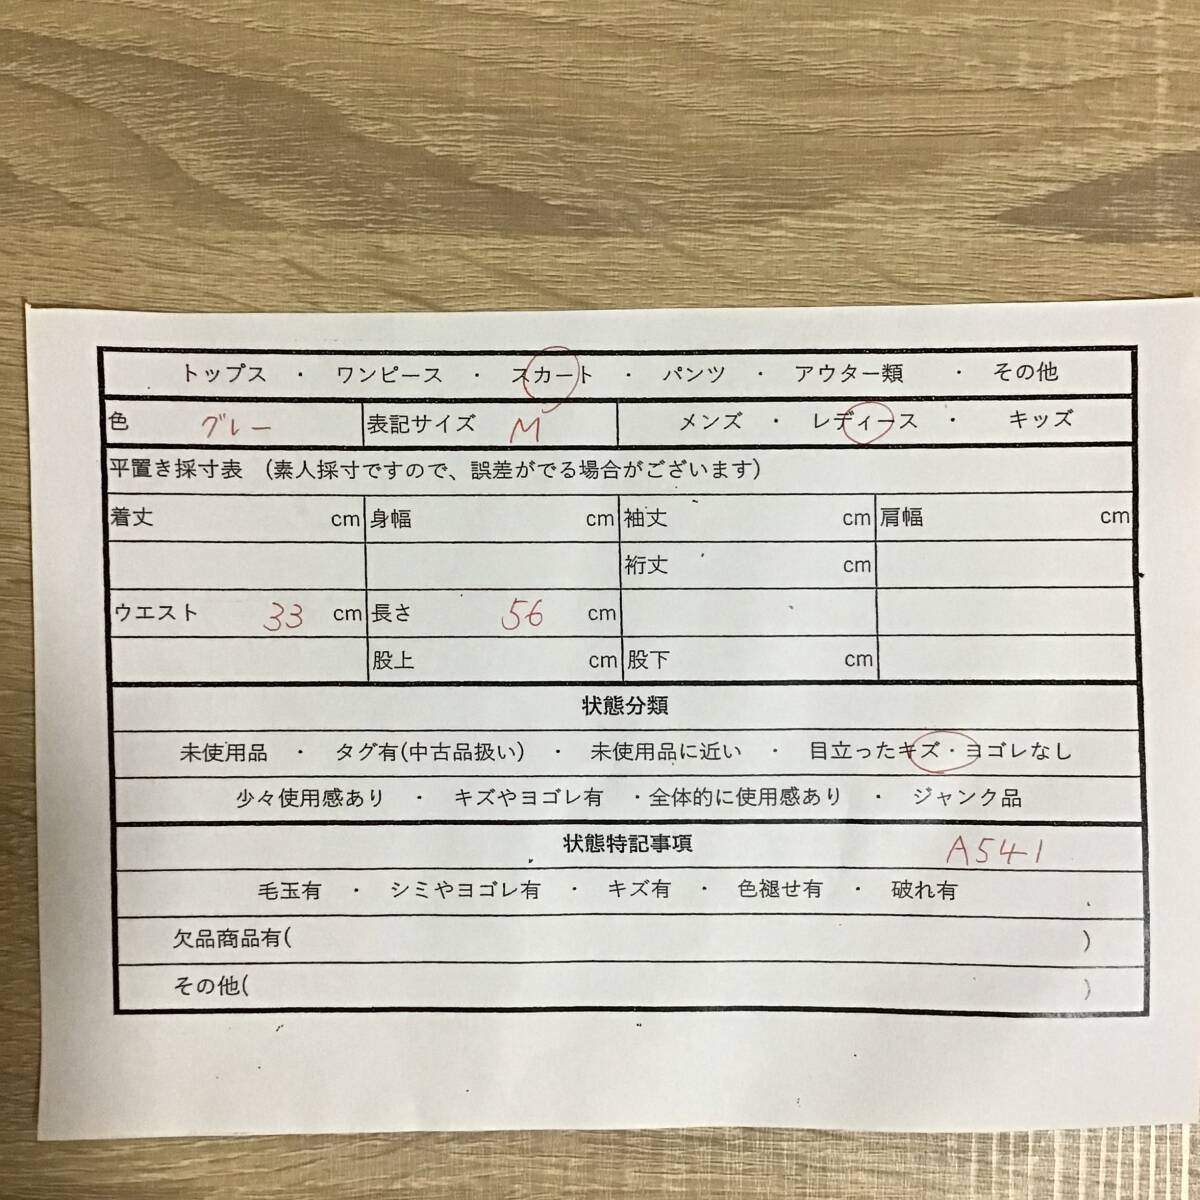 トップス ・ ワンピース ・ スカート ・ パンツ ・ アウター類 ・ その他
色 グレー 表記サイズ M メンズ ・ レディース ・ キッズ
平置き採寸表 (素人採寸ですので、誤差がでる場合がございます)
着丈 cm 身幅 cm 袖丈 cm 肩幅 cm
裄丈 cm
ウエスト 33 cm 長さ 56 cm
股上 cm 股下 cm
状態分類
未使用品 ・ タグ有(中古品扱い) ・ 未使用品に近い ・ 目立ったキズ・ヨゴレなし
少々使用感あり ・ キズやヨゴレ有 ・全体的に使用感あり ・ ジャンク品
状態特記事項 A541
毛玉有 ・ シミやヨゴレ有 ・ キズ有 ・ 色褪せ有 ・ 破れ有
欠品商品有( )
その他( )